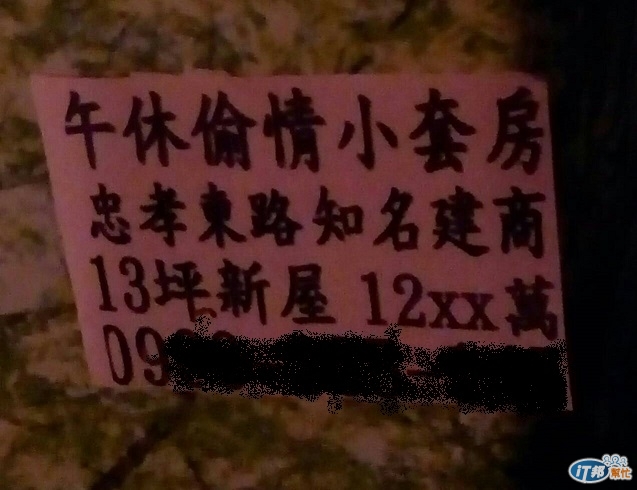 午休偷情小套房
忠孝東路知名建商
13坪新屋 12xx萬
09
iT邦
幫忙